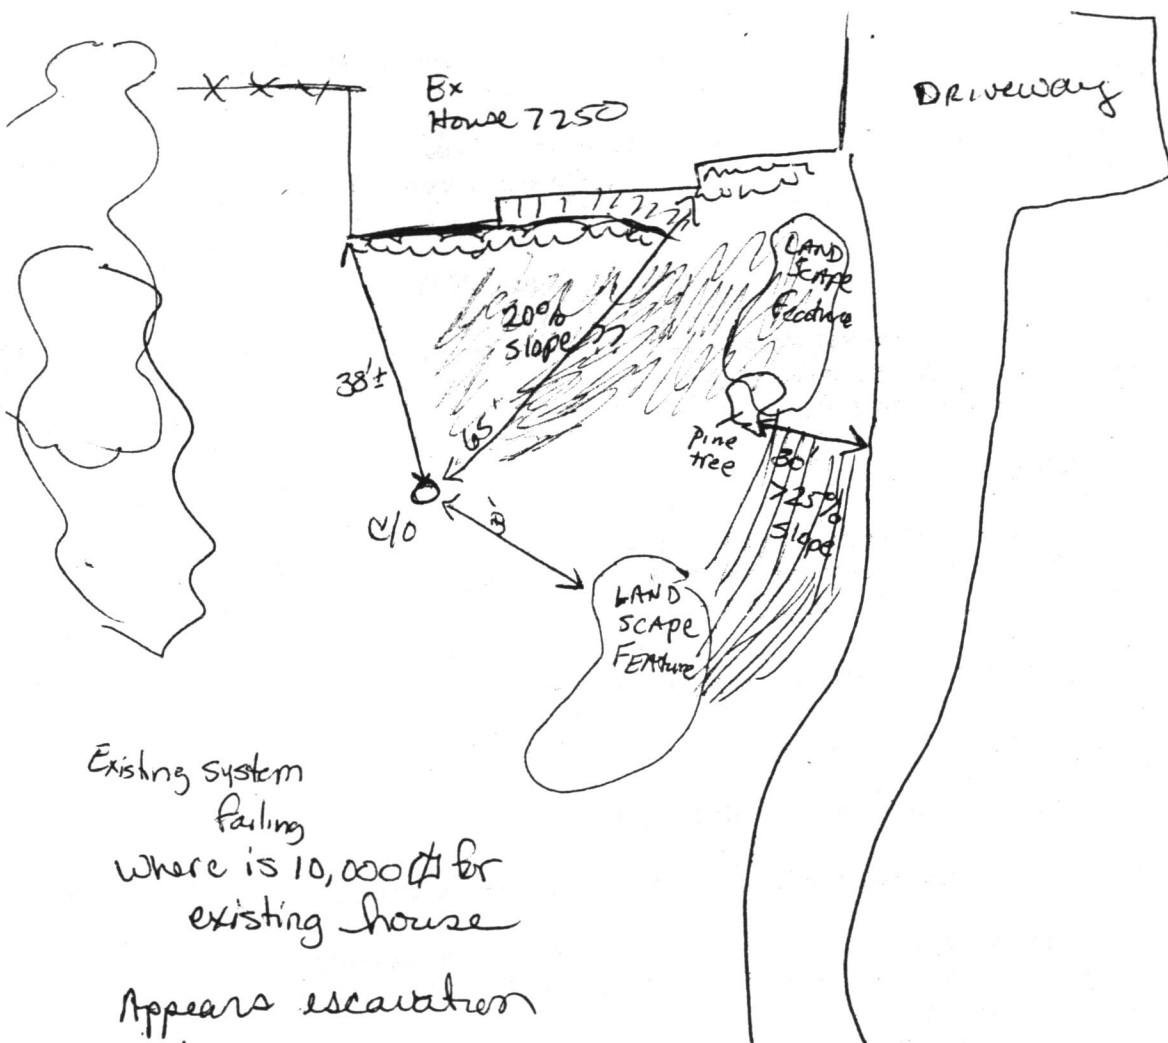 Ex
House 7250
DRIVEWAY
LAND
SCAPE
Feature
20%
slope
38'±
65'
Pine
tree
30'
>25%
Slope
C/O
LAND
SCAPE
FEAture
Existing system
failing
where is 10,000 for
existing house
Appears escavation